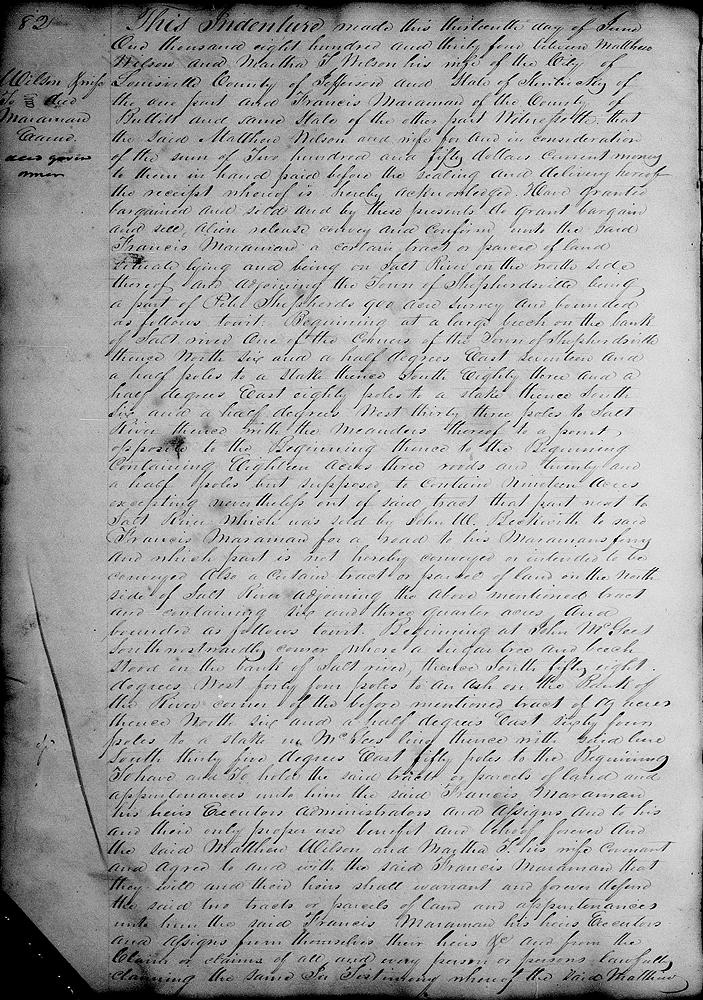 82
Wilson & wife
To Deed
Maraman
Exame.
and given
owner
This Indenture made this thirteenth day of June
One thousand eight hundred and thirty four between Matthew
Wilson and Martha T. Wilson his wife of the City of
Louisville County of Jefferson and State of Kentucky of
the one part and Francis Maraman of the County of
Bullitt and same State of the other part Witnesseth; that
the said Matthew Wilson and wife for and in consideration
of the sum of Two hundred and fifty dollars Current money
to them in hand paid before the sealing and delivery hereof
the receipt whereof is hereby acknowledged. Have granted
bargained and sold and by these presents do grant bargain
and sell, alien release convey and confirm unto the said
Francis Maraman a certain tract or parcel of land
Situate lying and being on Salt River on the north side
thereof and adjoining the Town of Shepherdsville being
a part of Peter Shepherds 900 acre survey and bounded
as follows towit: Beginning at a large beech on the bank
of Salt river One of the Corners of the Town of Shepherdsville
thence North six and a half degrees East seventeen and
a half poles to a Stake thence South Eighty three and a
half degrees East eighty poles to a stake thence South
six and a half degrees West thirty three poles to Salt
River thence with the meanders thereof to a point
opposite to the Beginning thence to the Beginning
Containing Eighteen acres three roods and twenty and
a half poles but supposed to contain nineteen acres
excepting nevertheless out of said tract that part next to
Salt River which was sold by John W. Beckwith to said
Francis Maraman for a road to his Maramans ferry
and which part is not hereby conveyed or intended to be
conveyed Also a Certain tract or parcel of land on the North
side of Salt River adjoining the above mentioned tract
and containing six and three quarter acres And
bounded as follows towit. Beginning at John McGees
southwestwardly corner where a sugar tree and beech
stood on the bank of Salt river, thence South fifty eight
degrees West forty four poles to an ash on the Bank of
the River corner of the before mentioned tract of 19 acres
thence North six and a half degrees East sixty four
poles to a stake in McGees line thence with said line
South thirty five degrees East fifty poles to the Beginning
To have and To hold the said tracts or parcels of land and
appurtenances unto him the said Francis Maraman
his heirs Executors administrators and assigns and to his
and their only proper use benefit and behoof forever And
the said Matthew Wilson and Martha T. his wife Covenant
and agree to and with the said Francis Maraman that
they will and their heirs shall warrant and forever defend
the said two tracts or parcels of land and appurtenances
unto him the said Francis Maraman his heirs Executors
and assigns from themselves their heirs &c and from the
Claim or claims of all and every person or persons lawfully
claiming the same In Testimony whereof the said Matthew